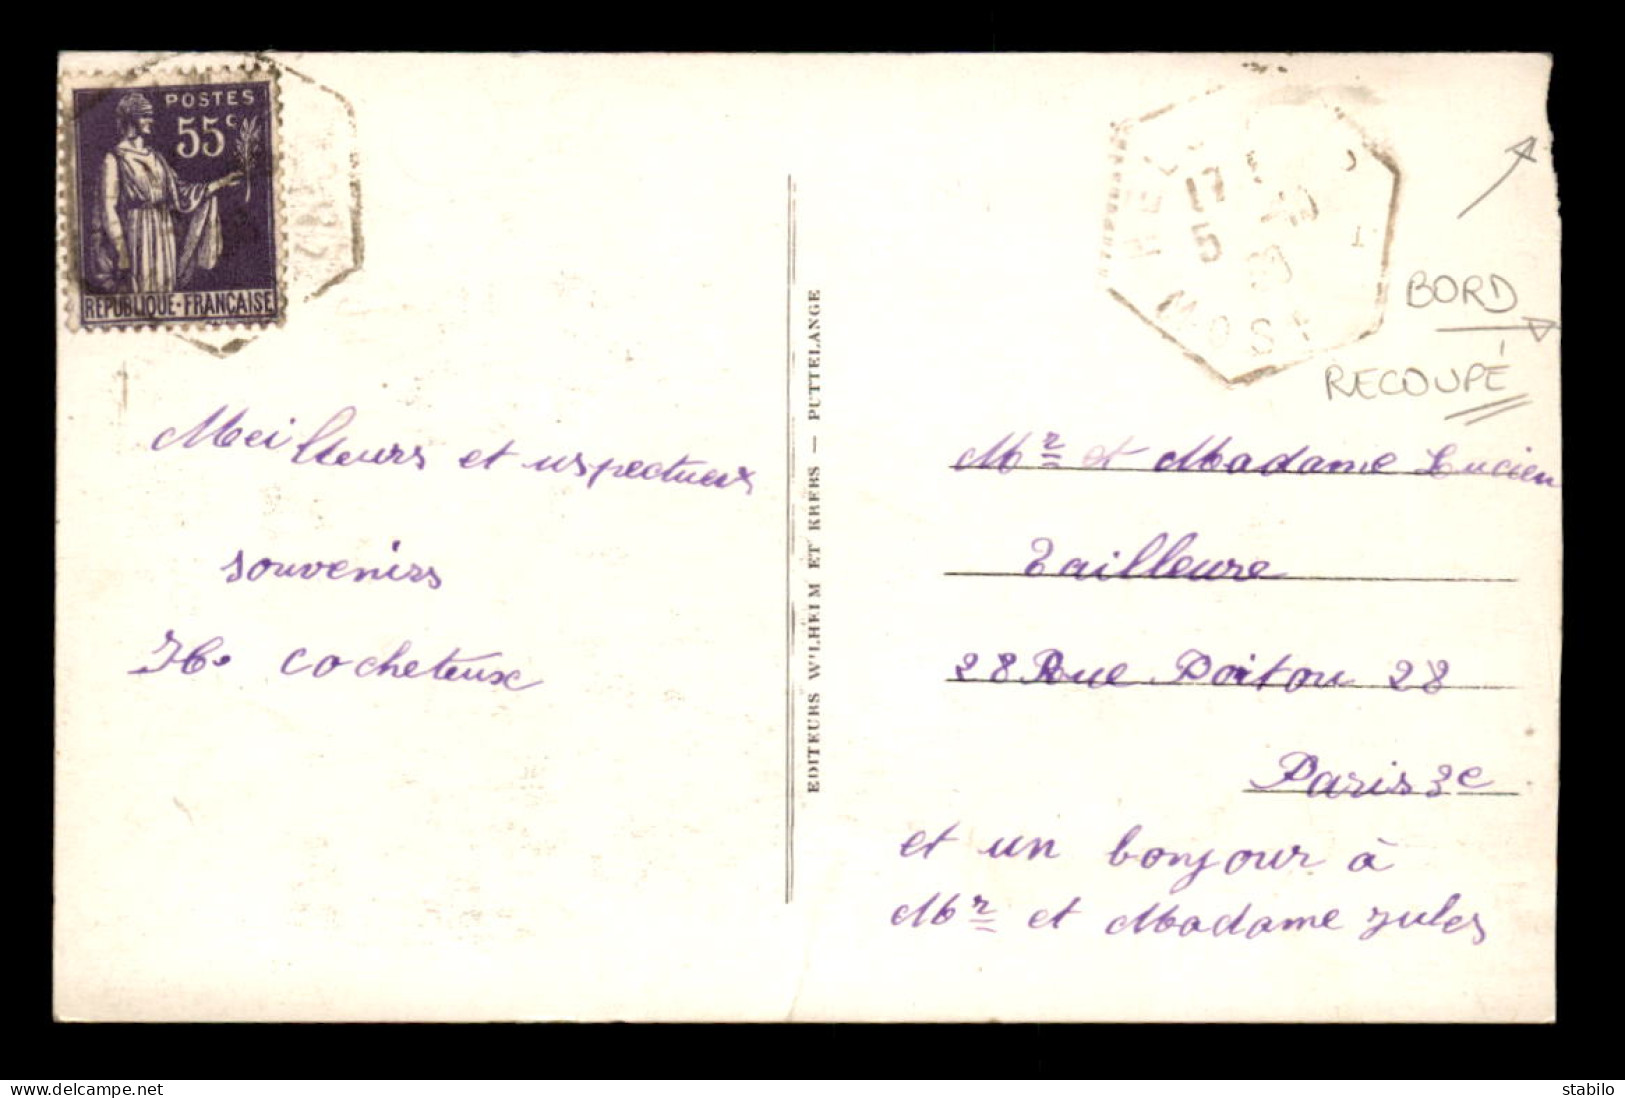 POSTES
55c
RÉPUBLIQUE·FRANÇAISE
Meilleurs et respectueux
souvenirs
H. Cocheteux
EDITEURS W'LHEIM ET KREBS — PUTTELANGE
17
5
MOSE
BORD
RECOUPÉ
Mr et Madame Lucien
Tailleure
28 Rue Poitou 28
Paris 3e
et un bonjour à
Mr et Madame Jules
delcampe.net
stabilo